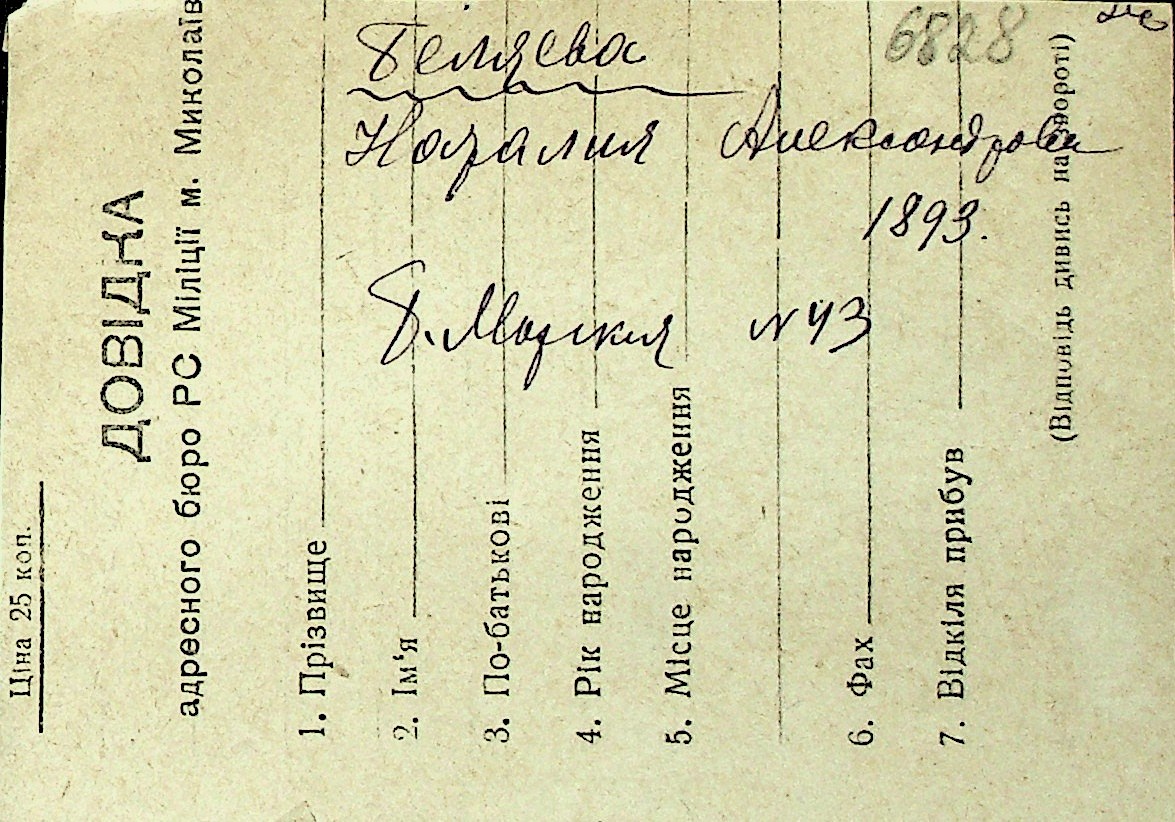 Ціна 25 коп.
ДОВІДКА
адресного бюро РС Міліції м. Миколаїв
1. Прізвище
2. Ім'я
3. По-батькові
4. Рік народження
5. Місце народження
6. Фах
7. Відкіля прибув
(Відповідь дивись на звороті)
6828
Беляева
Наталия Александровн
1893.
Б. Морская № 43